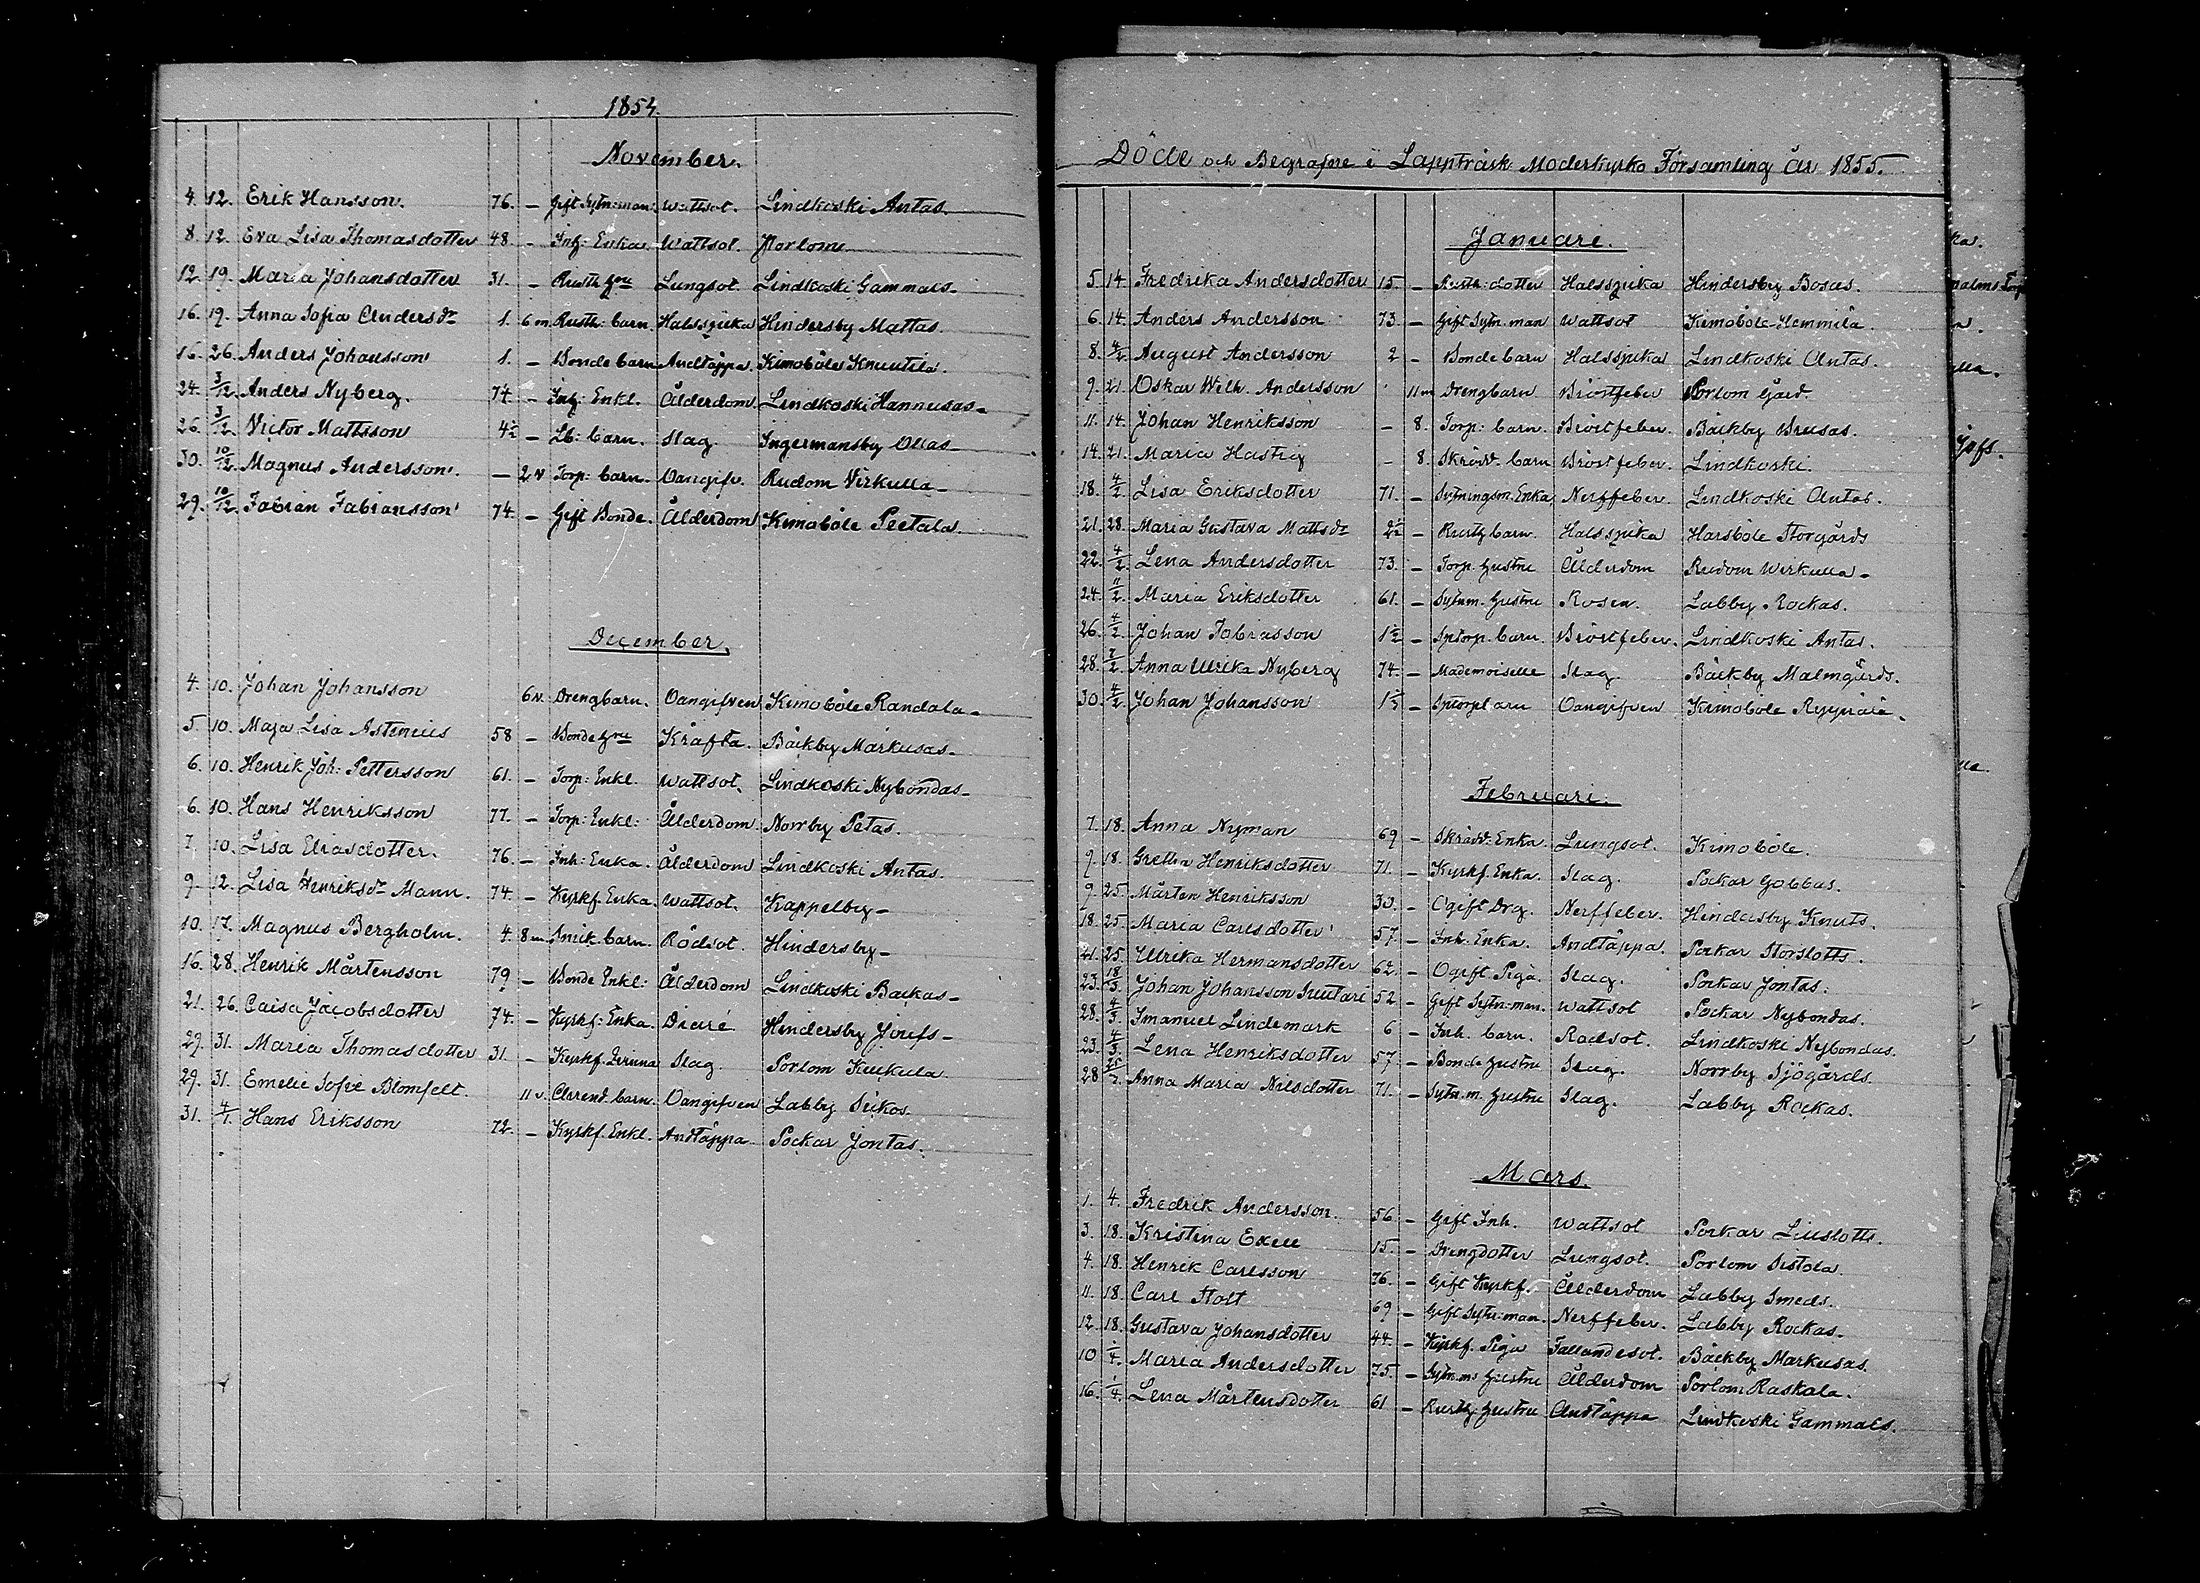 1854.
November.
4. 12. Erik Hansson. 76. – Gift Sytn:man. Wattsot. Lindkoski Antas.
8. 12. Eva Lisa Thomasdotter 48 – Inh: Enka. Wattsot. Porlom
12. 19. Maria Johansdotter 31. – Rusth hru Lungsot. Lindkoski Gammals –
16. 19. Anna Sofia Andersdr 1. 6 m Rusth: barn Halssjuka Hindersby Mattas.
16. 26. Anders Johansson 1. – Bonde barn Andtäppa. Kimoböle Knuutila.
24. 3/12. Anders Nyberg. 74. – Inh: Enkl. Ålderdom. Lindkoski Hannusas –
26. 3/12. Victor Mattsson 4½ – Lb: barn. Slag. Ingermansby Ollas –
30. 10/12. Magnus Andersson. – 2 v Torp: barn. Oangifv. Rudom Virkulla –
29. 10/12. Fabian Fabiansson 74. – Gift Bonde. Ålderdom Kimoböle Peetala.
December.
4. 10. Johan Johansson 6 v. Drengbarn. Oangifven Kimoböle Randala –
5. 10. Maja Lisa Astenius 58 – Bonde hru Kräfta. Bäckby Markusas –
6. 10. Henrik Joh: Pettersson 61. – Torp: Enkl. Wattsot. Lindkoski Nybondas –
6. 10. Hans Henriksson 77. – Torp: Enkl: Ålderdom. Norrby Petas.
7. 10. Lisa Eliasdotter. 76. – Inh: Enka. Ålderdom Lindkoski Antas.
9. 12. Lisa Henriksdr Mann. 74. – Kyrkf. Enka. Wattsot. Kappelby –
10. 17. Magnus Bergholm. 4. 8 m Snik. barn. Rödsot. Hindersby –
16. 28. Henrik Mårtensson 79 – Bonde Enkl: Ålderdom Lindkoski Backas –
21. 26. Caisa Jacobsdotter 74. – Kyrkf: Enka. Diaré Hindersby Josefs –
29. 31. Maria Thomasdotter 31. – Kyrkf. Slag. Porlom Kuukula
29. 31. Emelie Sofie Blomfelt. 11 v. Arend. barn. Oangifven Labby Sickos.
31. 4/1. Hans Eriksson 72. – Kyrkf. Enkl. Andtäppa Pockar Jontas.
Döde och Begrafne i Lappträsk Moderkyrko Församling år 1855.
Januari.
5. 14 Fredrika Andersdotter 15 – Rusth: dotter Halssjuka Hindersby Bosas.
6. 14. Anders Andersson 73. – Gift Sytn. man Wattsot Kimoböle Hemmilä.
8. 4/2. August Andersson 2 – Bonde barn Halssjuka Lindkoski Antas.
9. 21. Oskar Wilh. Andersson 11 m Drengbarn Bröstfeber Porlom Gård.
11. 14. Johan Henriksson – 8. Torp: barn. Bröstfeber. Bäckby Brusas.
14. 21. Maria Hastig – 8. Skrädd. barn Bröstfeber. Lindkoski.
18. 4/2 Lisa Eriksdotter 71. – Sytningsm. Enka. Nerffeber. Lindkoski Antas.
21. 28. Maria Gustava Mattsdr 2½ – Rusth barn. Halssjuka Harsböle Storgårds
22. 4/2. Lena Andersdotter 73. – Torp. hustru Ålderdom Rudom Wirkulla –
24. 11/2. Maria Eriksdotter 61. – Sytnm. hustru Rosen. Labby Rockas.
26. 4/2. Johan Tobiasson 1½ – Sptorp. barn. Bröstfeber. Lindkoski Antas.
28. 2/2. Anna Ulrika Nyberg 74. – Mademoiselle Slag. Bäckby Malmgårds.
30. 4/2. Johan Johansson – Sptorpbarn Oangifven Kimoböle
Februari.
7. 18. Anna Nyman 69 – Skrädd: Enka Lungsot. Kimoböle.
9. 18. Gretha Henriksdotter 71. – Kyrkf. Enka. Slag. Pockar Gobbas.
9. 25. Mårten Henriksson 33. – Ogift Drg. Nerffeber. Hindersby Knuts.
18. 25. Maria Carlsdotter 57. – Inh. Enka. Andtäppa. Pockar Storslotts.
21. 25. Ulrika Hermansdotter 62. – Ogift Piga Slag. Pockar Jontas.
23. 18/3. Johan Johansson Suutari 52 – Gift Sytn: man. Wattsot Pockar Nybondas.
28. 4/3. Imanuel Lindemark 6 – Inh. barn. Rödsot. Lindkoski Nybondas.
23. 4/3. Lena Henriksdotter 57 – Bonde hustru Slag. Norrby Sjögårds.
28 Anna Maria Nilsdotter 71. – Sytn. m. hustru Slag. Labby Rockas.
Mars.
1. 4. Fredrik Andersson. 56 – Gift Inh. Wattsot Pockar Lillslotts.
3. 18. Kristina Exell 15. – Drengdotter Lungsot. Porlom Sistola.
4. 18. Henrik Carlsson 76. – Gift Kyrkf. Ålderdom Labby Smeds.
11. 18. Carl Stolt 69 – Gift Sytn: man. Nerffeber. Labby Rockas.
12. 18. Gustava Johansdotter 44. – Kyrkf. Piga Fallandesot. Bäckby Markusas.
10 1/4. Maria Andersdotter 75. – Sytn. ms hustru Ålderdom Porlom Raskala.
16. 1/4. Lena Mårtensdotter 61 – Rusth hustru Andtäppa Lindkoski Gammals.